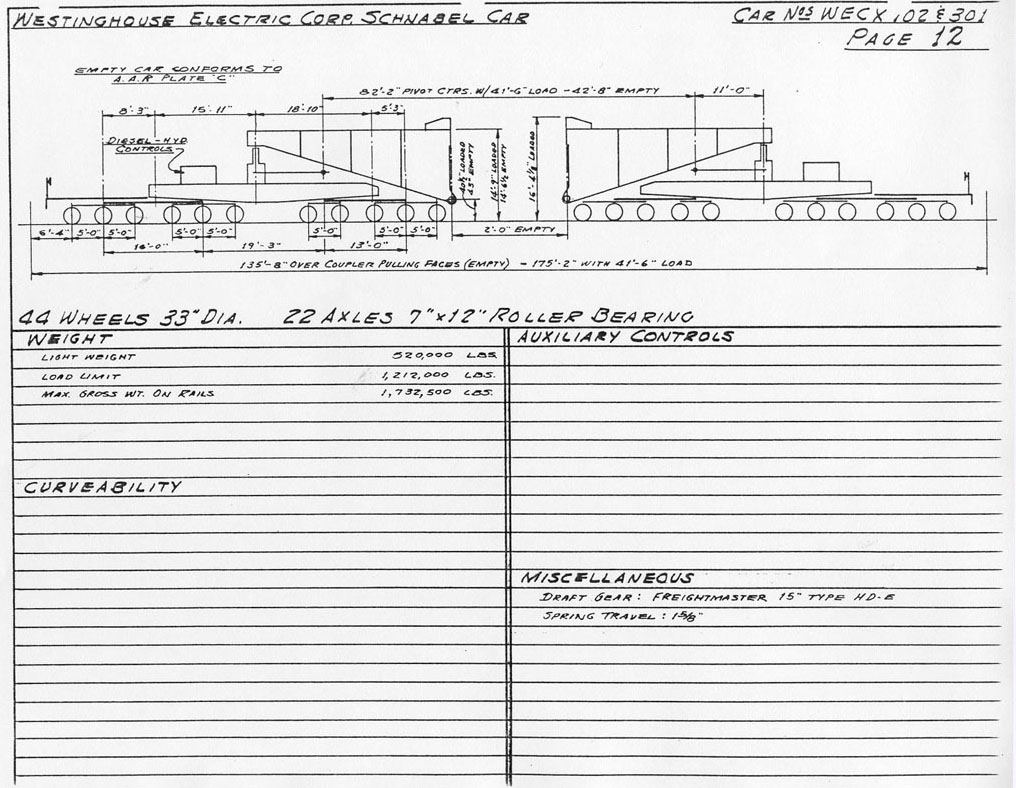 WESTINGHOUSE ELECTRIC CORP. SCHNABEL CAR
CAR NOS WECX 102 & 301
PAGE 12
EMPTY CAR CONFORMS TO
A.A.R PLATE "C"
82'-2" PIVOT CTRS. W/41'-6" LOAD - 42'-8" EMPTY
11'-0"
8'-3"
15'-11"
18'-10"
5'-3"
DIESEL-HYD.
CONTROLS
40½" LOADED
43" EMPTY
14'-9" LOADED
14'-6½ EMPTY
16'-4⅛" LOADED
6'-4"
5'-0"
5'-0"
5'-0"
5'-0"
5'-0"
5'-0"
5'-0"
2'-0" EMPTY
16'-0"
19'-3"
13'-0"
135'-8" OVER COUPLER PULLING FACES (EMPTY) - 175'-2" WITH 41'-6" LOAD
44 WHEELS 33" DIA. 22 AXLES 7"x12" ROLLER BEARING
WEIGHT
LIGHT WEIGHT 520,000 LBS.
LOAD LIMIT 1,212,000 LBS.
MAX. GROSS WT. ON RAILS 1,732,500 LBS.
CURVEABILITY
AUXILIARY CONTROLS
MISCELLANEOUS
DRAFT GEAR: FREIGHTMASTER 15" TYPE HD-E
SPRING TRAVEL: 1-5/8"